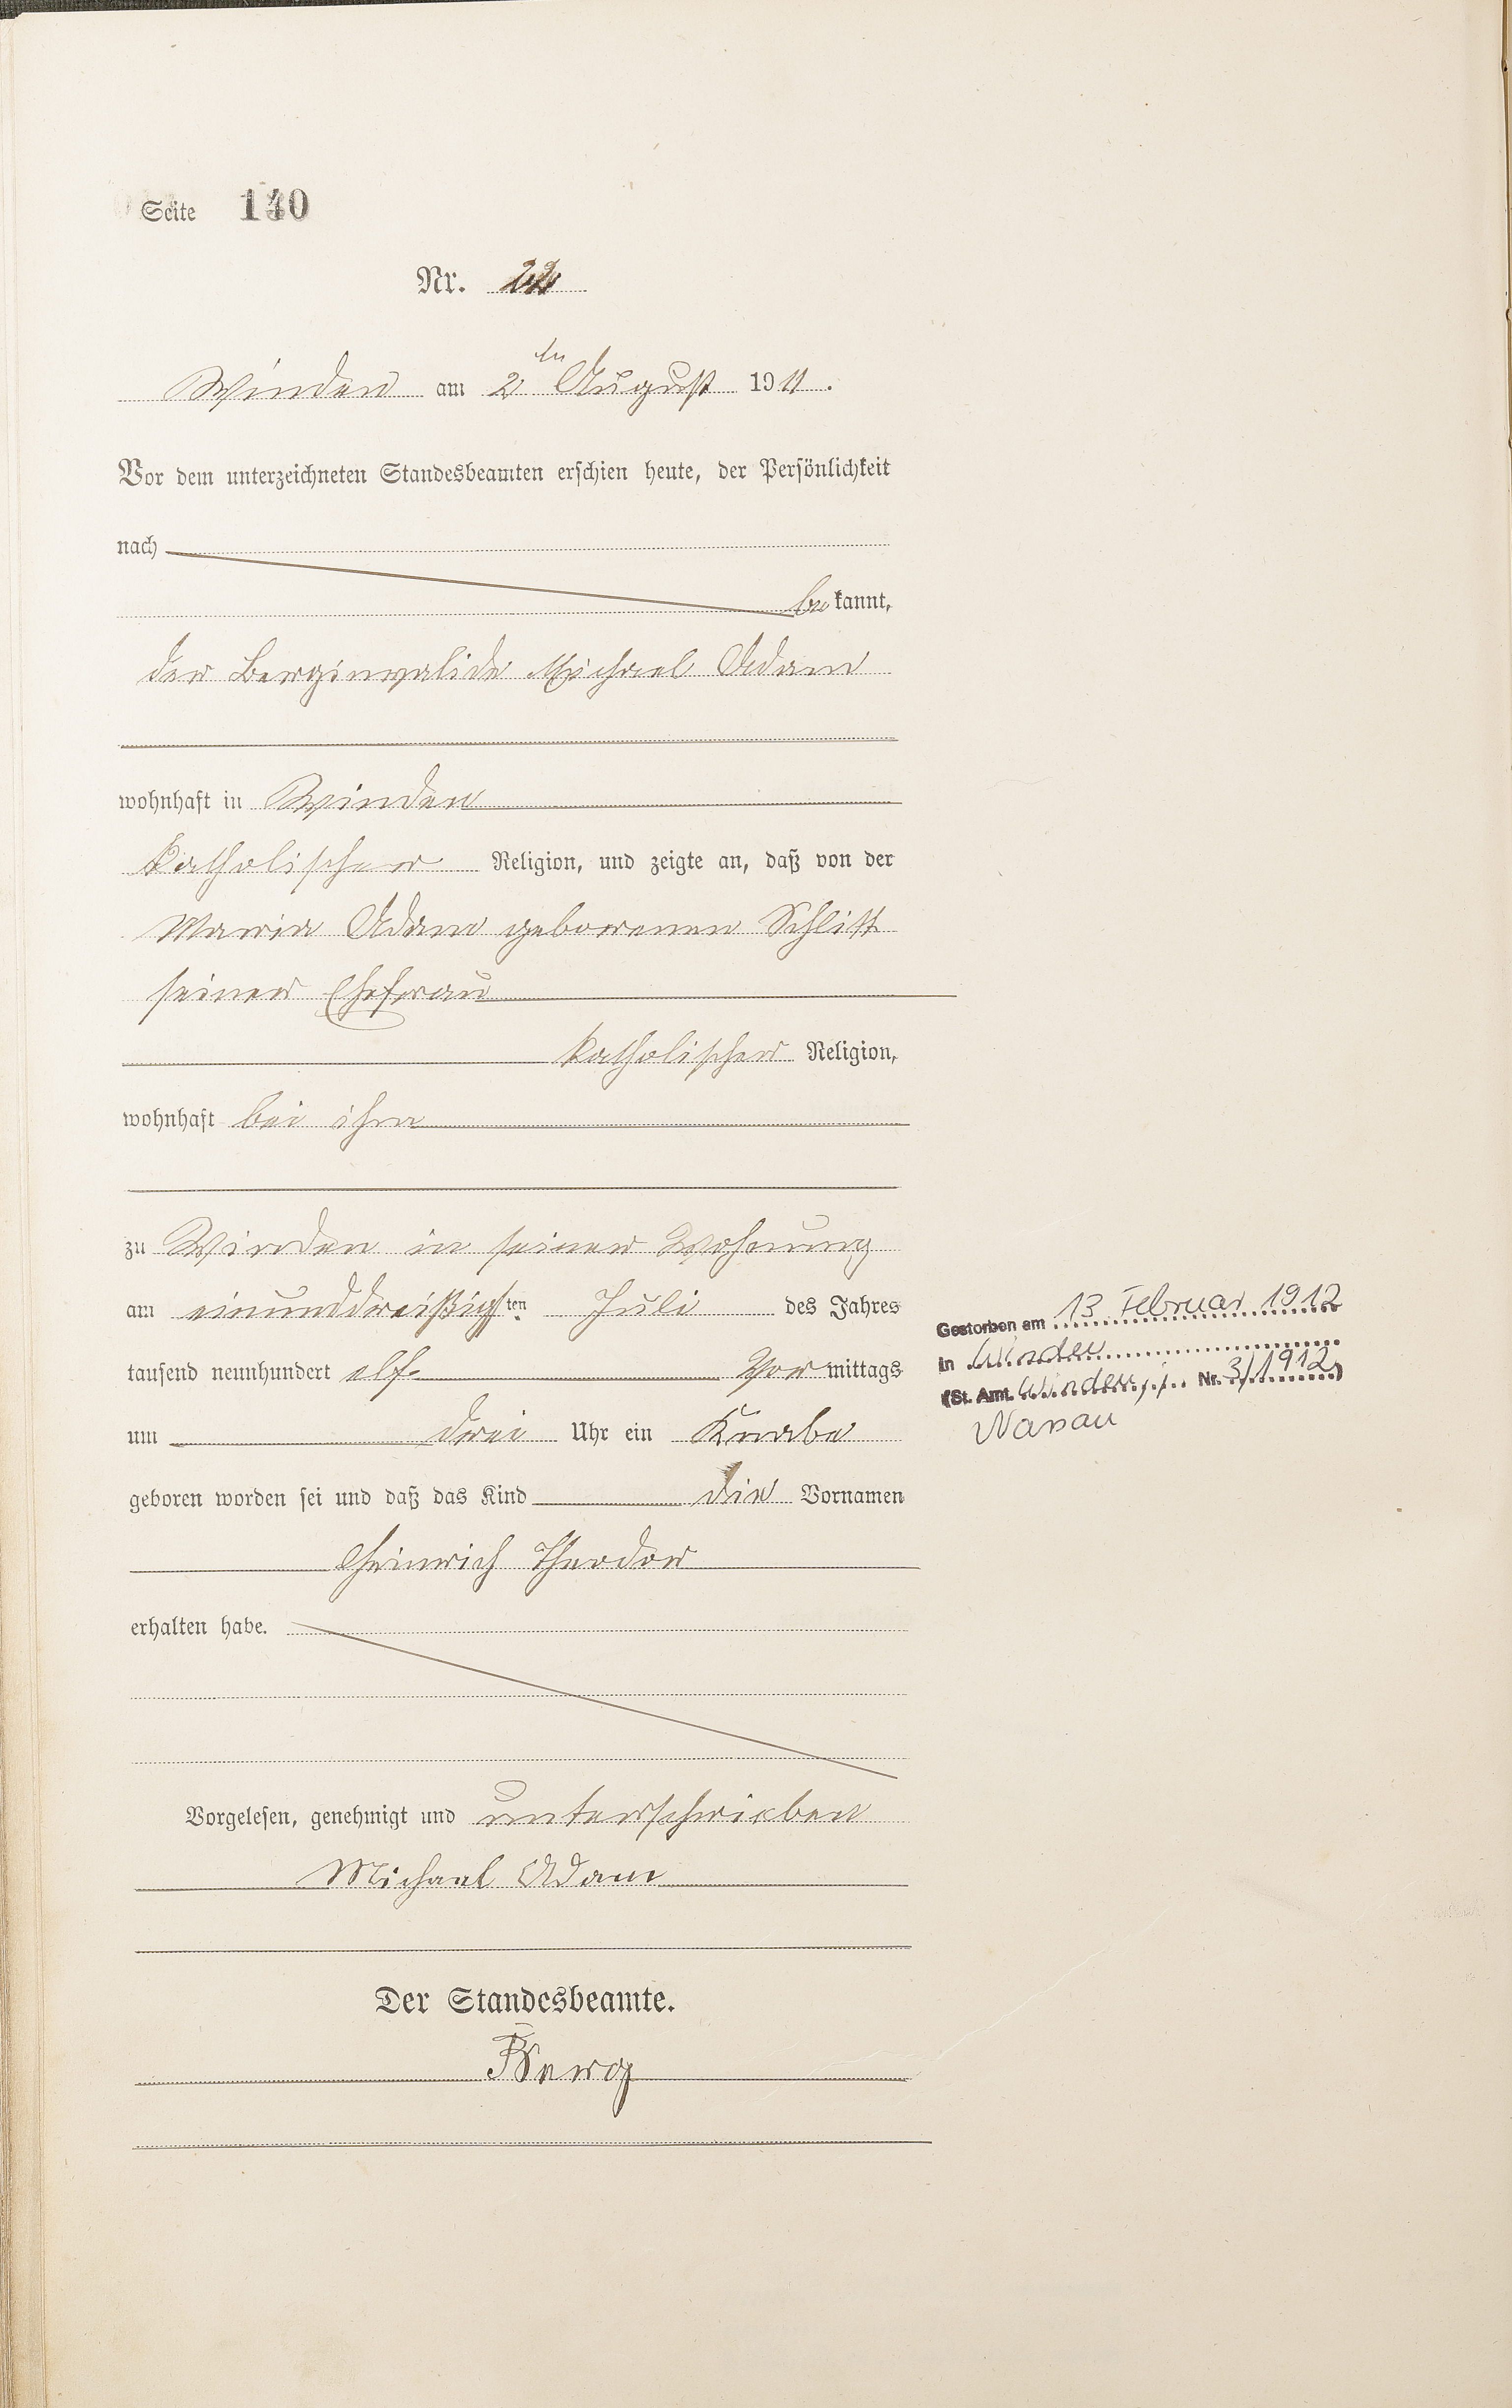 Seite 140
Nr. 22
Winden am 2ten August 1911.
Vor dem unterzeichneten Standesbeamten erschien heute, der Persönlichkeit
nach
bekannt,
der Berginvalide Michael Adam
wohnhaft in Winden
katholischer Religion, und zeigte an, daß von der
Maria Adam geborenen Schlitt
seiner Ehefrau
katholischer Religion,
wohnhaft bei ihm
zu Winden in seiner Wohnung
am einunddreißigsten Juli des Jahres
tausend neunhundert elf Vormittags
um drei Uhr ein Knabe
geboren worden sei und daß das Kind die Vornamen
Heinrich Theodor
erhalten habe.
Vorgelesen, genehmigt und unterschrieben
Michael Adam
Der Standesbeamte.
Berg
Gestorben am 13. Februar 1912
in Winden
(St. Amt. Winden, j. Nr. 3/1912)
Nassau